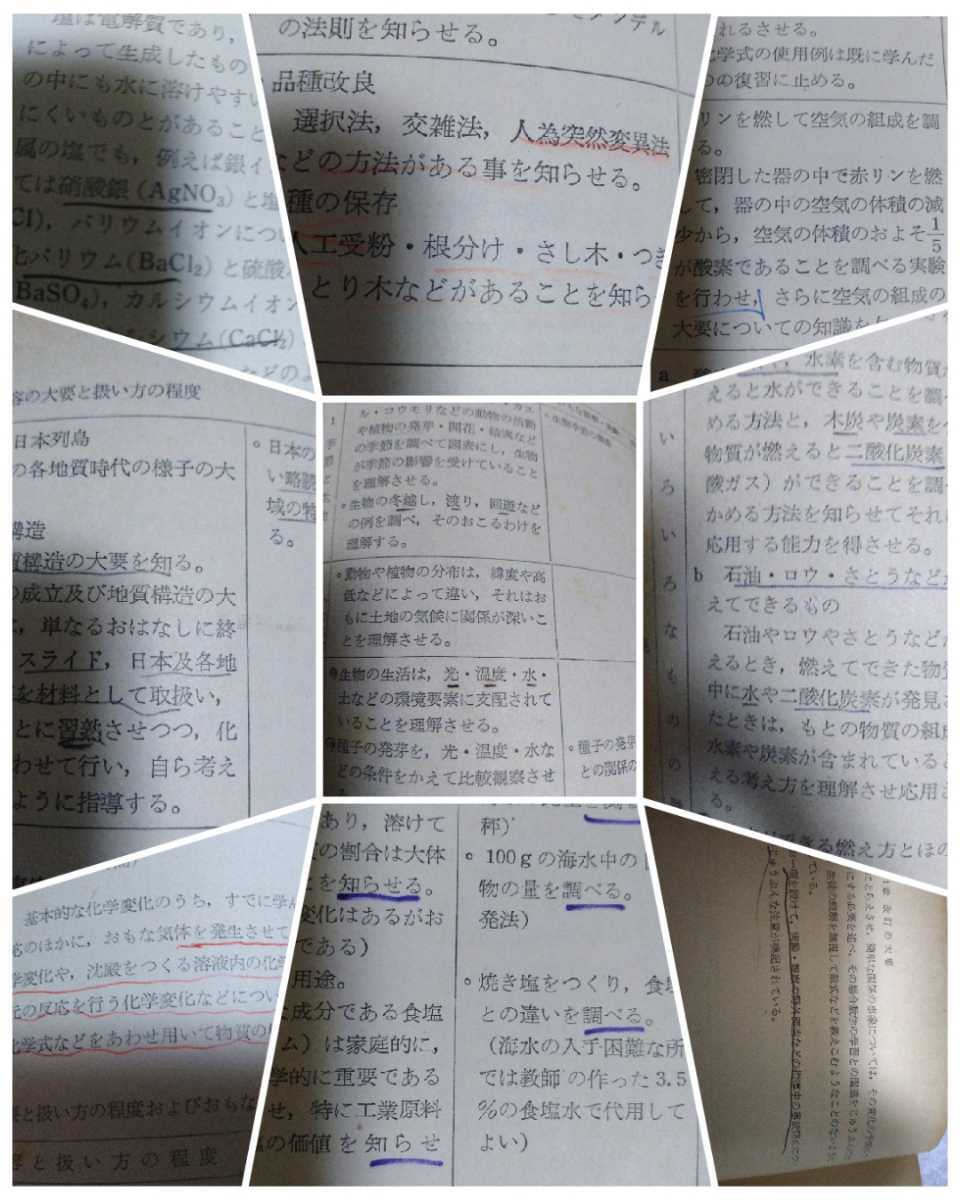 塩は電解質であり,
によって生成したもの
の中にも水に溶けやすい
にくいものとがあること
属の塩でも, 例えば銀イ
ては硝酸銀 (AgNO₃) と塩
CI), バリウムイオンについ
化バリウム(BaCl₂) と硫酸
BaSO₄), カルシウムイオン
シウム(CaCl₂)
などのよ
の法則を知らせる。
品種改良
選択法, 交雑法, 人為突然変異法
などの方法がある事を知らせる。
種の保存
人工受粉・根分け・さし木・つぎ
とり木などがあることを知ら
れるさせる。
化学式の使用例は既に学んだ
つの復習に止める。
リンを燃して空気の組成を調
る。
密閉した器の中で赤リンを燃
して, 器の中の空気の体積の減
少から, 空気の体積のおよそ1/5
が酸素であることを調べる実験
を行わせ, さらに空気の組成の
大要についての知識を
容の大要と扱い方の程度
日本列島
の各地質時代の様子の大
構造
質構造の大要を知る。
の成立及び地質構造の大
単なるおはなしに終
スライド, 日本及各地
を材料として取扱い,
とに習熟させつつ, 化
わせて行い, 自ら考え
ように指導する。
。日本の
い略
域の特
る。
ル・コウモリなどの動物の活動
や植物の発芽・開花・結実など
の季節を調べて図表にし, 生物
が季節の影響を受けていること
を理解させる。
。生物の冬越し, 渡り, 回遊など
の例を調べ, そのおこるわけを
理解する。
。動物や植物の分布は, 緯度や高
低などによって違い, それはお
もに土地の気候に関係が深いこ
とを理解させる。
生物の生活は, 光・温度・水・
土などの環境要素に支配されて
いることを理解させる。
種子の発芽を, 光・温度・水な
どの条件をかえて比較観察させ
。種子の発芽
との関係の
a
いろいろなものの
水素を含む物質が
えると水ができることを調べ
める方法と, 木炭や炭素を
物質が燃えると二酸化炭素
酸ガス) ができることを調べ
かめる方法を知らせてそれ
応用する能力を得させる。
b 石油・ロウ・さとうなどが
えてできるもの
石油やロウやさとうなどが
えるとき, 燃えてできた物質
中に水や二酸化炭素が発見さ
たときは, もとの物質の組成
水素や炭素が含まれていると
える考え方を理解させ応用さ
る。
る燃え方とほの
基本的な化学変化のうち, すでに学ん
のほかに, おもな気体を発生させて
学変化や, 沈殿をつくる溶液内の化学
元の反応を行う化学変化などについ
化学式などをあわせ用いて物質の
要と扱い方の程度およびおもな
容と扱い方の程度
あり, 溶けて
の割合は大体
とを知らせる。
変化はあるがお
である)
用途。
な成分である食塩
ム) は家庭的に,
学的に重要である
せ, 特に工業原料
の価値を知らせ
秤)
。100gの海水中の
物の量を調べる。
発法)
。焼き塩をつくり, 食塩
との違いを調べる。
(海水の入手困難な所
では教師の作った3.5
%の食塩水で代用して
よい)
改訂の大要
ている。